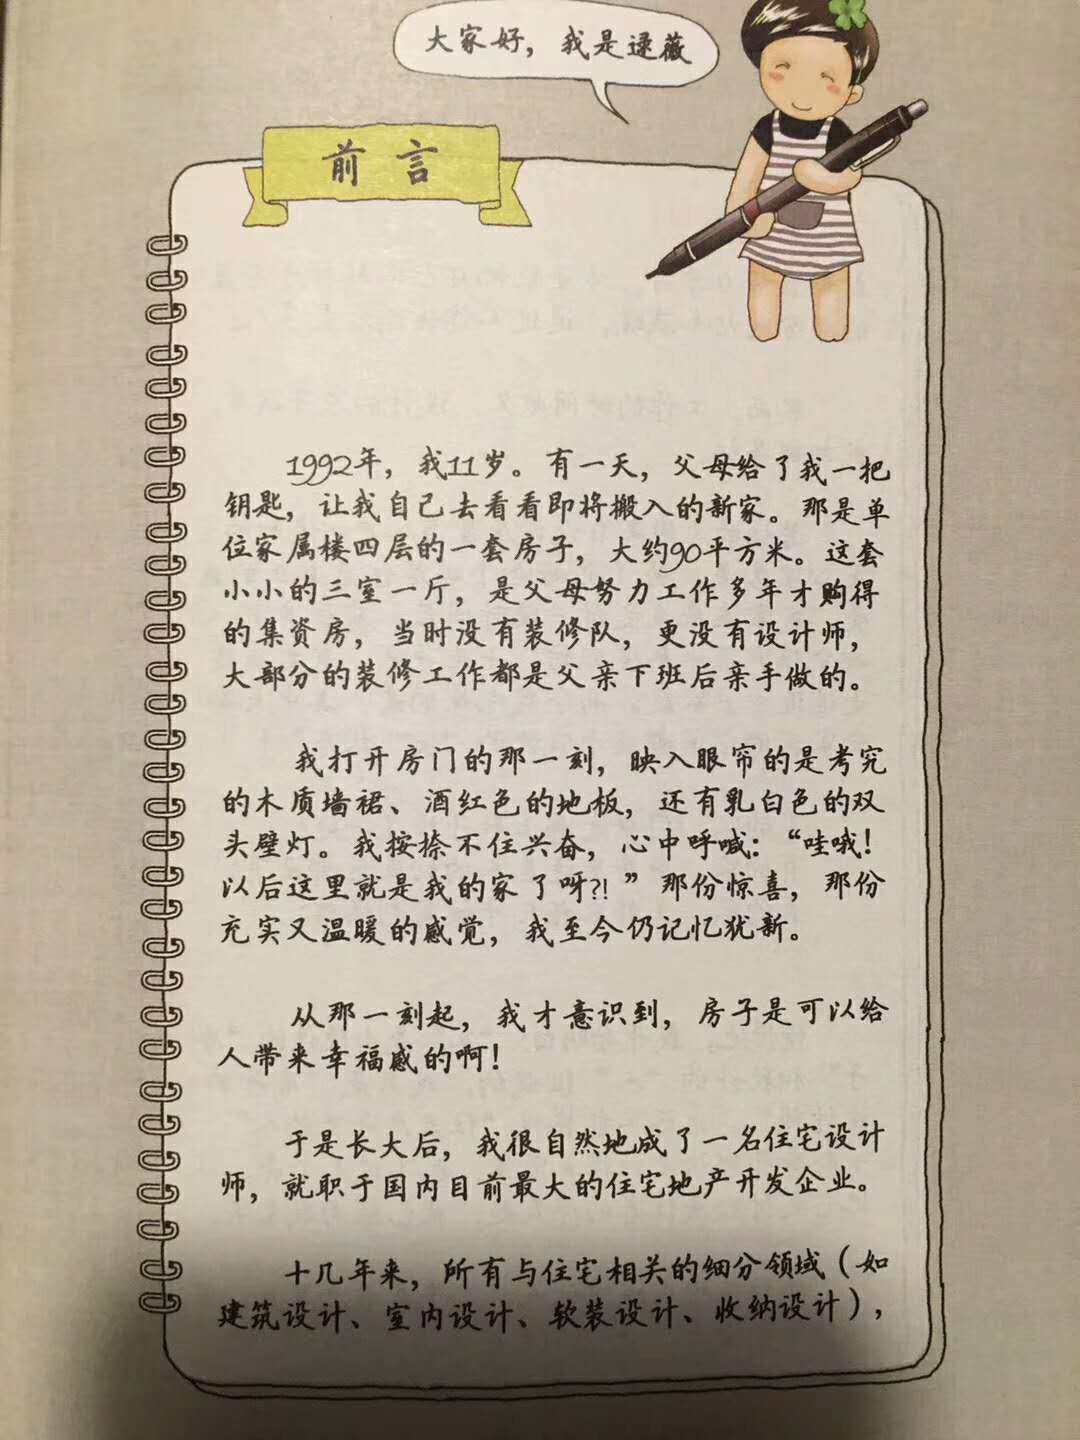 大家好，我是逯薇
前言
1992年，我11岁。有一天，父母给了我一把
钥匙，让我自己去看看即将搬入的新家。那是单
位家属楼四层的一套房子，大约90平方米。这套
小小的三室一厅，是父母努力工作多年才购得
的集资房，当时没有装修队，更没有设计师，
大部分的装修工作都是父亲下班后亲手做的。
我打开房门的那一刻，映入眼帘的是考究
的木质墙裙、酒红色的地板，还有乳白色的双
头壁灯。我按捺不住兴奋，心中呼喊：“哇哦！
以后这里就是我的家了呀？！”那份惊喜，那份
充实又温暖的感觉，我至今仍记忆犹新。
从那一刻起，我才意识到，房子是可以给
人带来幸福感的啊！
于是长大后，我很自然地成了一名住宅设计
师，就职于国内目前最大的住宅地产开发企业。
十几年来，所有与住宅相关的细分领域（如
建筑设计、室内设计、软装设计、收纳设计），